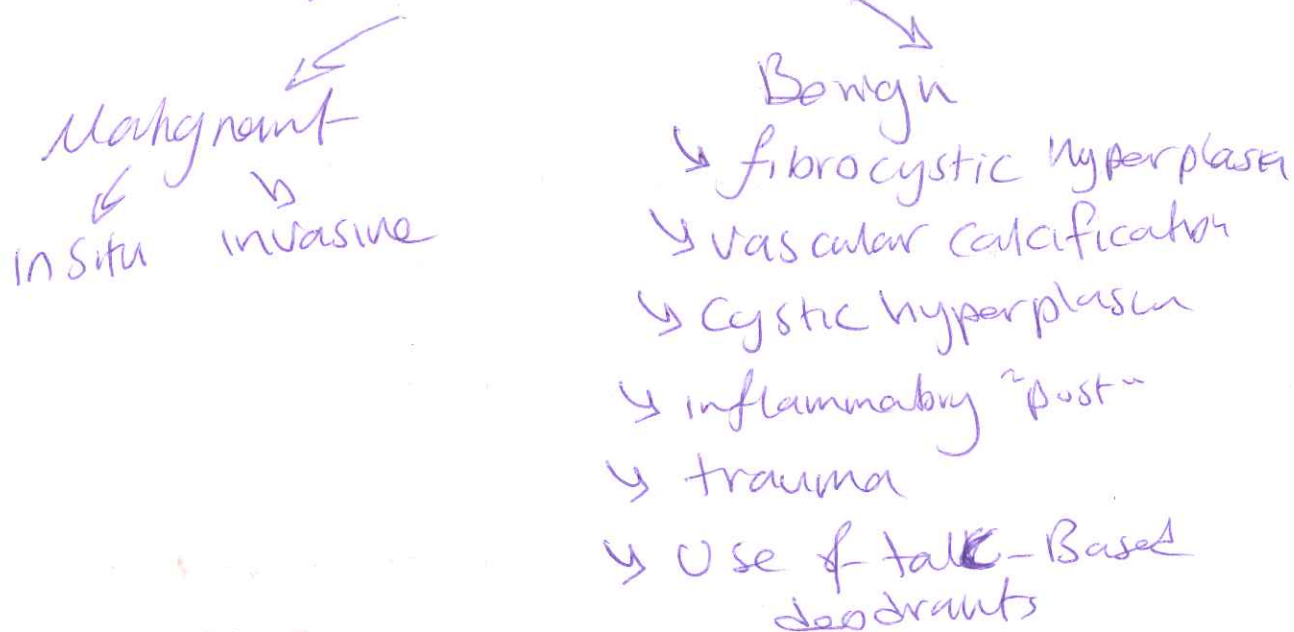 Malignant
Benign
insitu invasive
fibrocystic hyperplasia
vascular calcification
Cystic hyperplasia
inflammatory "post"
trauma
Use of talc-Based
deodrants